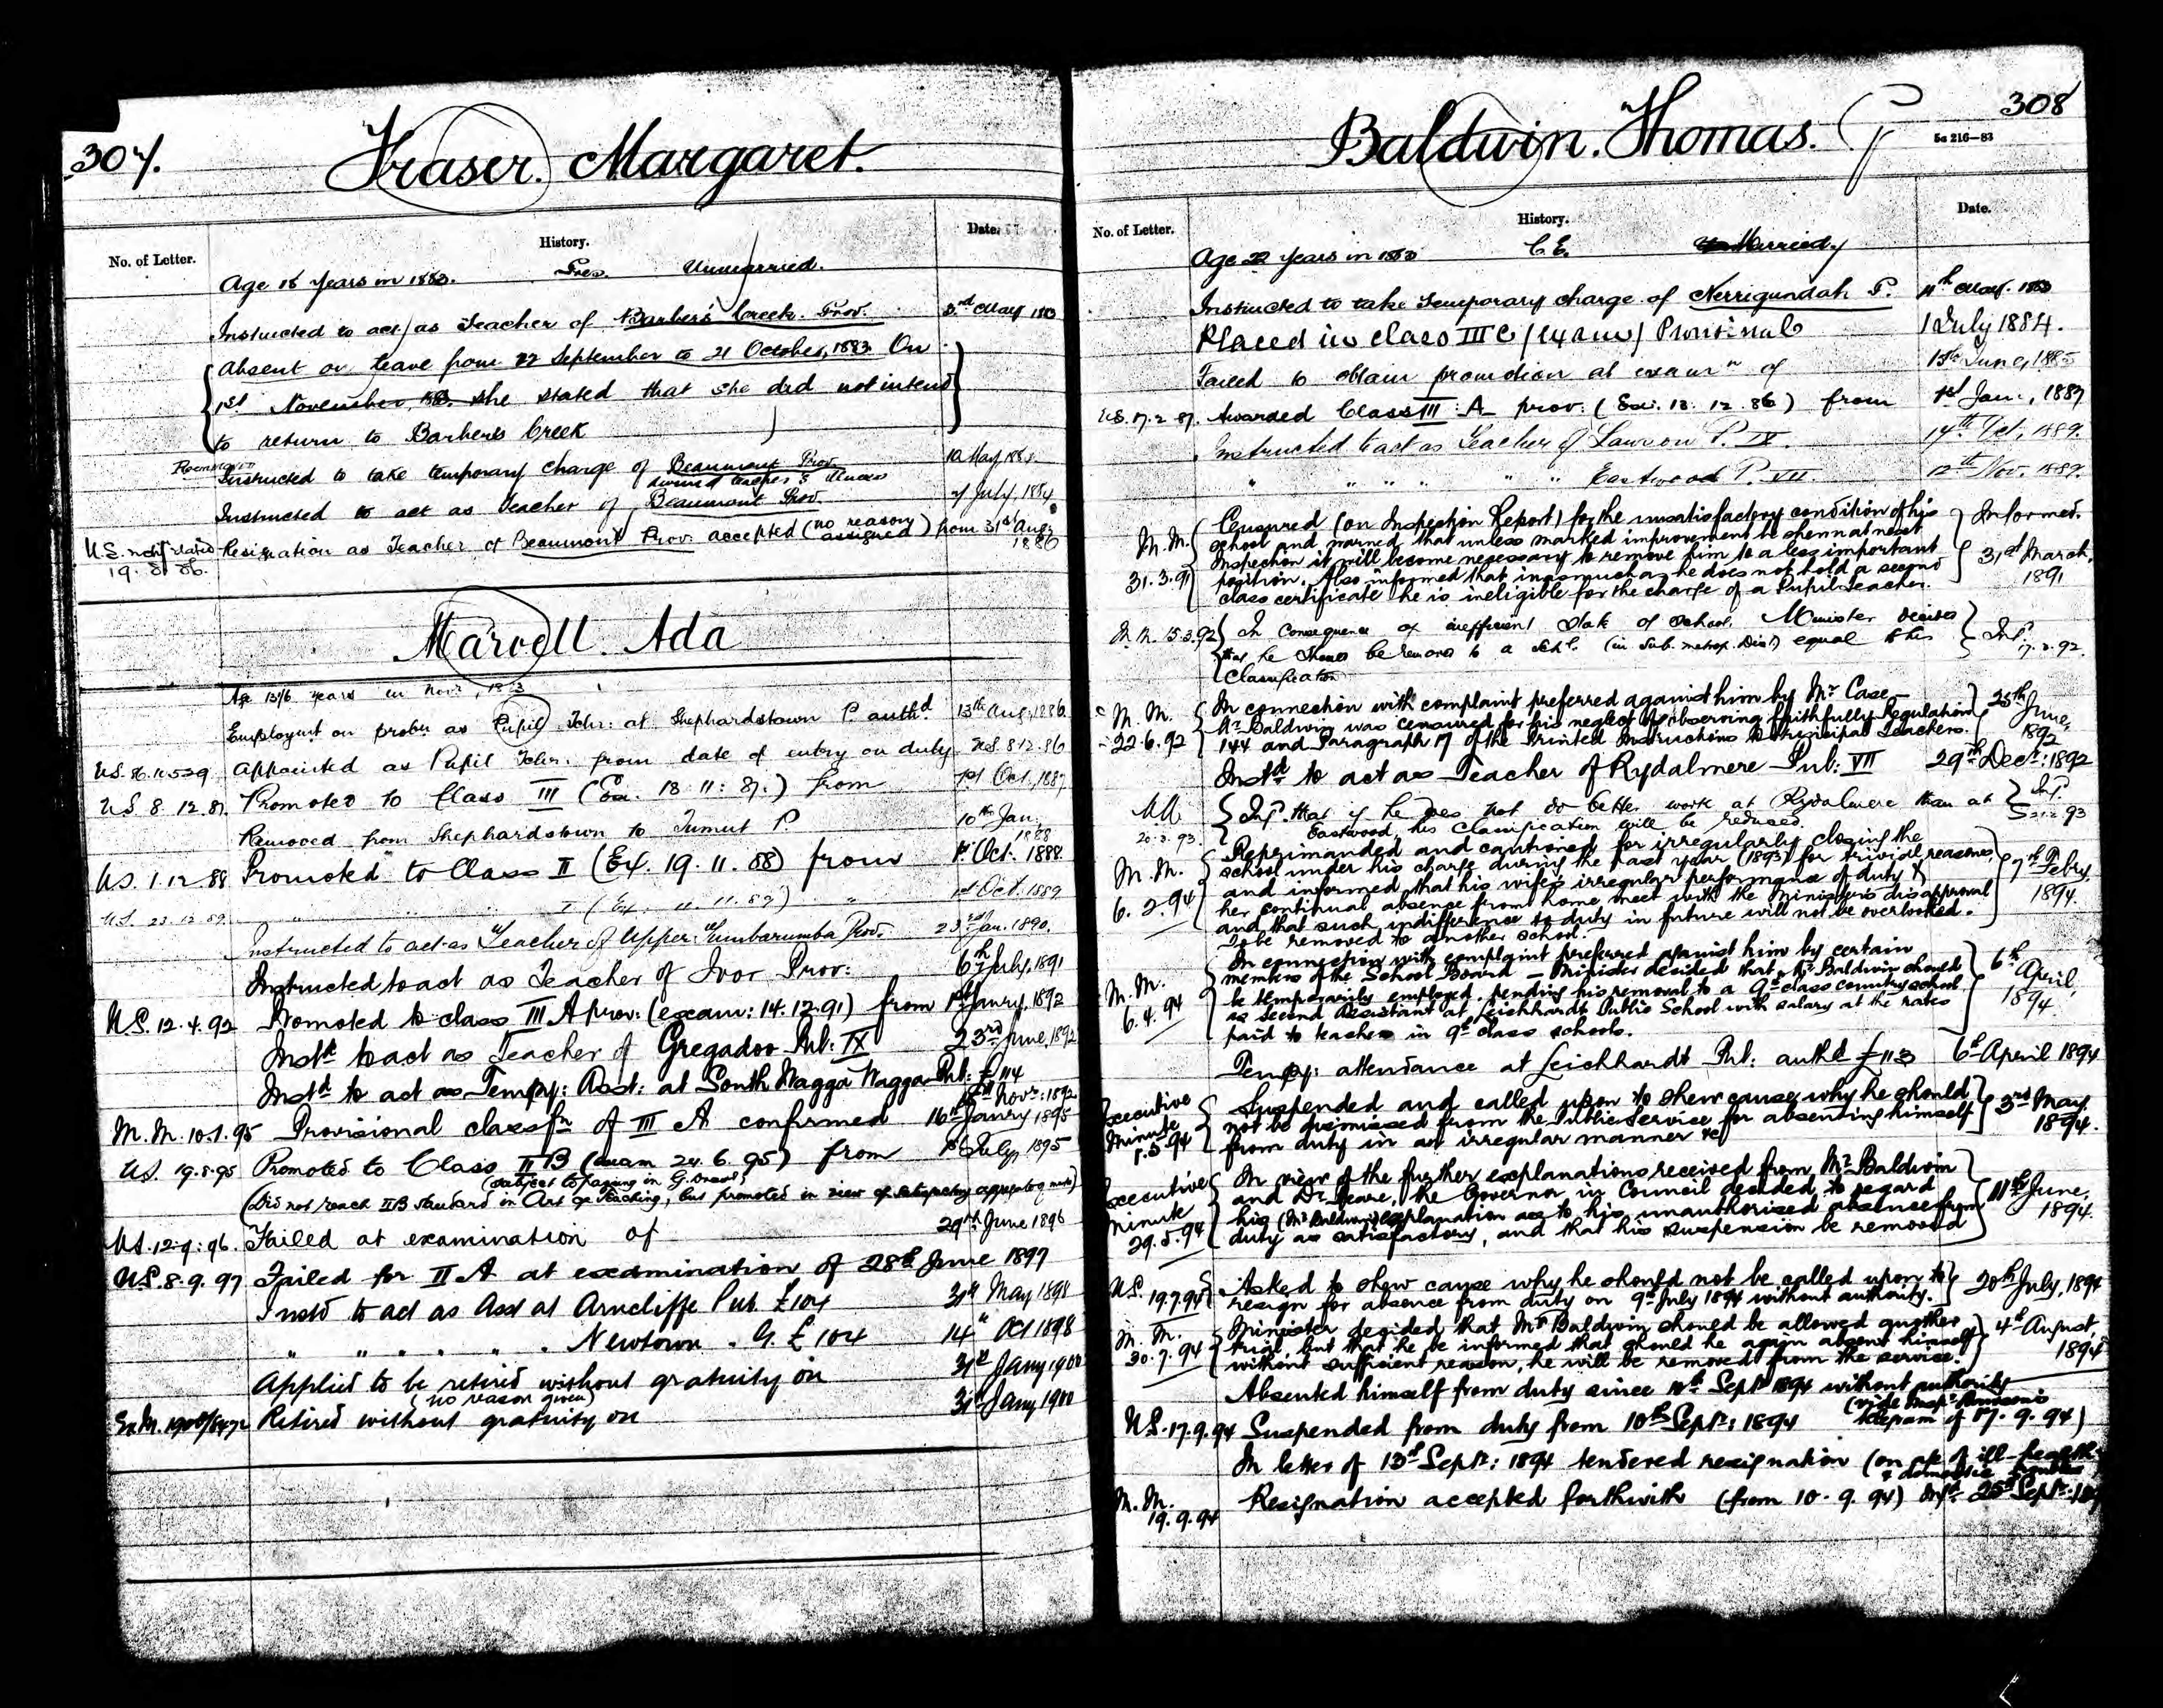 307.
Fraser. Margaret.
No. of Letter. History. Date.
Age 18 years in 1883. Pres. Unmarried.
Instructed to act as Teacher of Barber's Creek. Prov. 3rd May 1883
Absent on leave from 22 September to 21 October, 1883 On
1st November, 1883. she stated that she did not intend
to return to Barber's Creek
Instructed to take temporary charge of Beaumont Prov. 12 May 188
during teacher's illness
Instructed to act as Teacher of Beaumont Prov. July 1884
U.S. not dated Resignation as Teacher of Beaumont Prov. accepted (no reason assigned) from 31st Aug. 1886
19. 8. 86.
Marvell. Ada
Age 13 6/ years in Novr, 1883
Employment on probn as Pupil Tchr: at Shephardstown P. authd. 13th Aug, 1886.
U.S. 86.11.529 Appointed as Pupil Tchr. from date of entry on duty U.S. 8.12.86
U.S. 8. 12. 87. Promoted to Class III (Ex. 18: 11: 87.) from 1st Oct, 1887
Removed from Shephardstown to Tumut P. 10th Jan. 1888
U.S. 1.12.88 Promoted to Class II (Ex. 19. 11. 88) from 1st Oct. 1888.
U.S. 23.12.89. " " " I (Ex. 11. 11. 89) " 1st Oct. 1889
Instructed to act as Teacher of Upper Tumbarumba Prov. 23rd Jan. 1890.
Instructed to act as Teacher of Ivor Prov: 6th July, 1891
U.S. 12. 4. 92 Promoted to class III A prov: (exam: 14.12.91) from 1st Janry. 1892
Instd to act as Teacher of Gregadoo Pub: IX 23rd June, 1892
Instd to act as Tempy: Asst: at South Wagga Wagga Pub: £114
Novr: 1892
M. M. 10.1.95 Provisional classfn of III A confirmed 16th Janry 1895
U.S. 19.8.95 Promoted to Class II B (exam 24. 6. 95) from 1st July, 1895
(subject to passing in G. Draw)
(Did not reach IIB standard in Art of Teaching, but promoted in view of satisfactory aggregate of marks)
U.S. 12.9.96. Failed at examination of 29th June 1896
U.S. 8. 9. 97 Failed for II A at examination of 28th June 1897
Instd to act as Asst at Arncliffe Pub. £104 31st May 1898
" " " " " Newtown . G. £104 14" Oct 1898
Applied to be retired without gratuity on 31st Jany 1900
(no reason given)
Ex. M. Retired without gratuity on 31st Jany 1900
308
5a 216—83
Baldwin. Thomas. G
No. of Letter. History. Date.
Age 22 years in 1883 C.E. Married
Instructed to take temporary charge of Nerrigundah P. 11th May. 1883
Placed in class III C (exam) Provisional 1 July 1884.
Failed to obtain promotion at examn of 15th June, 1885
U.S. 17. 2. 87. Awarded Class III : A prov: (Ex. 13. 12. 86) from 1st Jan., 1887
Instructed to act as Teacher of Lawson P. IX. 14th Oct, 1889.
" " " " " Eastwood P. VII. 12th Nov. 1889.
Censured (on Inspection Report) for the unsatisfactory condition of his Informed.
M. M. school and warned that unless marked improvement be shewn at next
Inspection it will become necessary to remove him to a less important 31st March,
31.3.91 position. Also informed that inasmuch as he does not hold a second 1891
class certificate he is ineligible for the charge of a Pupil Teacher.
M. M. 15.3.92 In consequence of inefficient state of school, Minister decides
that he should be removed to a Schl. (in Sub. metrop. Dist.) equal to his Inf.
Classification 17.3.92.
In connection with complaint preferred against him by Mr Case 25th
M. M. Mr Baldwin was censured for his neglect of observing faithfully Regulation June,
22.6.92 144 and Paragraph 17 of the Printed Instructions to Principal Teachers. 1892
Instd to act as Teacher of Rydalmere Pub: VII 29th Decr: 1892
Infd. that if he does not do better work at Rydalmere than at Infd.
Eastwood, his classification will be reduced. 93
Reprimanded and cautioned for irregularly closing the
M. M. school under his charge during the past year (1893) for trivial reasons 7th Febry.
and informed that his wife's irregular performance of duty &
6. 2. 94 her continual absence from home meet with the Minister's disapproval 1894.
and that such indifference to duty in future will not be overlooked.
To be removed to another school.
In connection with complaint preferred against him by certain
members of the School Board — Minister decided that Mr Baldwin should 6th
M. M. be temporarily employed, pending his removal to a 9th class country school, April,
6.4.94 as second Assistant at Leichhardt Public School with salary at the rates 1894
paid to teachers in 9th class schools.
Tempy: attendance at Leichhardt Pub: authd £113 6th April 1894
Executive Suspended and called upon to shew cause why he should 3rd May
Minute not be dismissed from the Public Service for absenting himself 1894.
1.5.94 from duty in an irregular manner &c
In view of the further explanations received from Mr Baldwin
Executive and Dr. Deane, the Governor in Council decided to regard 11th June,
Minute his (Mr Baldwin's) explanation as to his unauthorised absence from 1894.
29.5.94 duty as satisfactory, and that his suspension be removed
U.S. 19.7.94 Asked to shew cause why he should not be called upon to 20th July, 1894
resign for absence from duty on 9th July 1894 without authority.
M. M. Minister decided that Mr Baldwin should be allowed another 4th August,
30.7.94 trial, but that he be informed that should he again absent himself 1894
without sufficient reason, he will be removed from the service.
Absented himself from duty since 10th Septr 1894 without authority
U.S. 17.9.94 Suspended from duty from 10th Septr: 1894 telegram of 17. 9. 94)
In letter of 13th Septr: 1894 tendered resignation (on a/c of ill-health
& domestic
M. M. Resignation accepted forthwith (from 10. 9. 94) Infd 25th Septr.
19. 9. 94